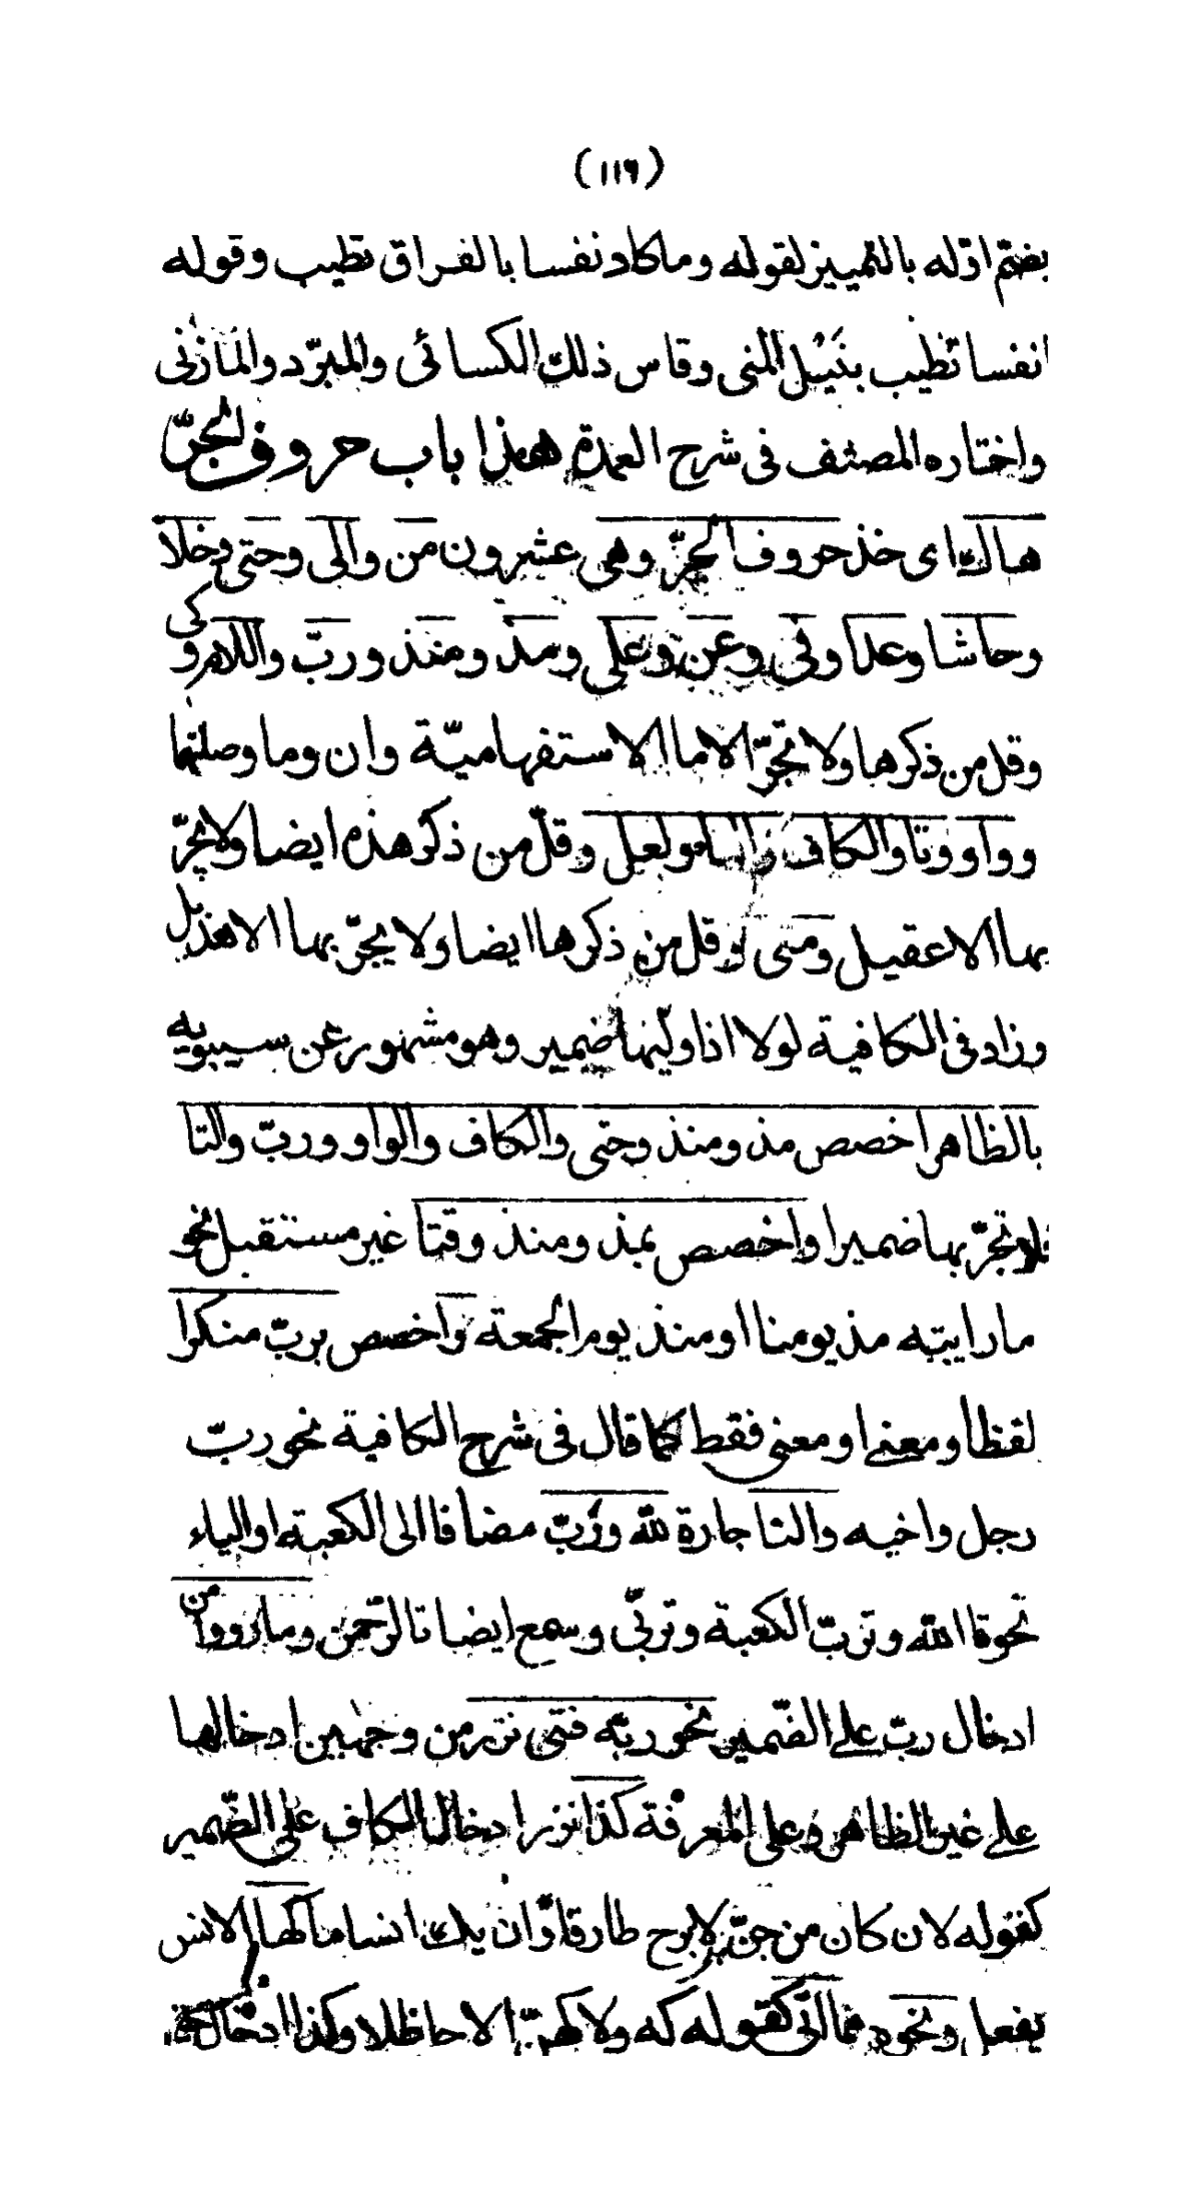 (١١٦)
بضمّ اوّله بالتمييز لقوله وماكاد نفسا بالفراق تطيب وقوله
انفسا تطيب بنَيْل المنى وقاس ذلك الكسائى والمبرّد والمازنى
واختاره المصنف فى شرح العمدة هذا باب حروف الجرّ
هاك اى خذ حروف الجرّ وهى عشرون من والى وحتى وخلا
وحاشا وعدا وفى وعن وعلى ومذ ومنذ وربّ واللام وكى
وقل من ذكرها ولا تجرّ الا ما الاستفهاميّة وان وما وصلتهما
وواو وتا والكاف والبا ولعل وقلّ من ذكر هذه ايضا ولا يجرّ
بها الا عقيل ومتى وقل من ذكرها ايضا ولا يجرّ بها الا هذيل
وزاد فى الكافية لولا اذا وليها ضمير وهو مشهور عن سيبويه
بالظاهر اخصص مذ ومنذ وحتى والكاف والواو وربّ والتا
فلا تجرّ بها ضميرا واخصص بمذ ومنذ وقتا غير مستقبل نحو
ما رايته مذ يومنا او منذ يوم الجمعة واخصص بربّ منكرا
لفظا ومعنى او معنى فقط كما قال فى شرح الكافية نحو ربّ
رجل واخيه والتا جارة للّه وَرَبّ مضافا الى الكعبة او الياء
نحو تا اللّه وتربّ الكعبة وتربّى وسمع ايضا تالرّحمن وما رووا من
ادخال ربّ على الضّمير نحو ربّه فتى نزر من وجهين ادخالها
على غير الظاهر وعلى المعرفة كذا نزر ادخال الكاف على الضّمير
كقوله لان كان من جنّ لابرح طارقا وَان يك انسا ما كها الانس
يفعل ونحوه مما اتى كقوله كه ولا كهنّ الا حاظلا وكذا ادخال حتى